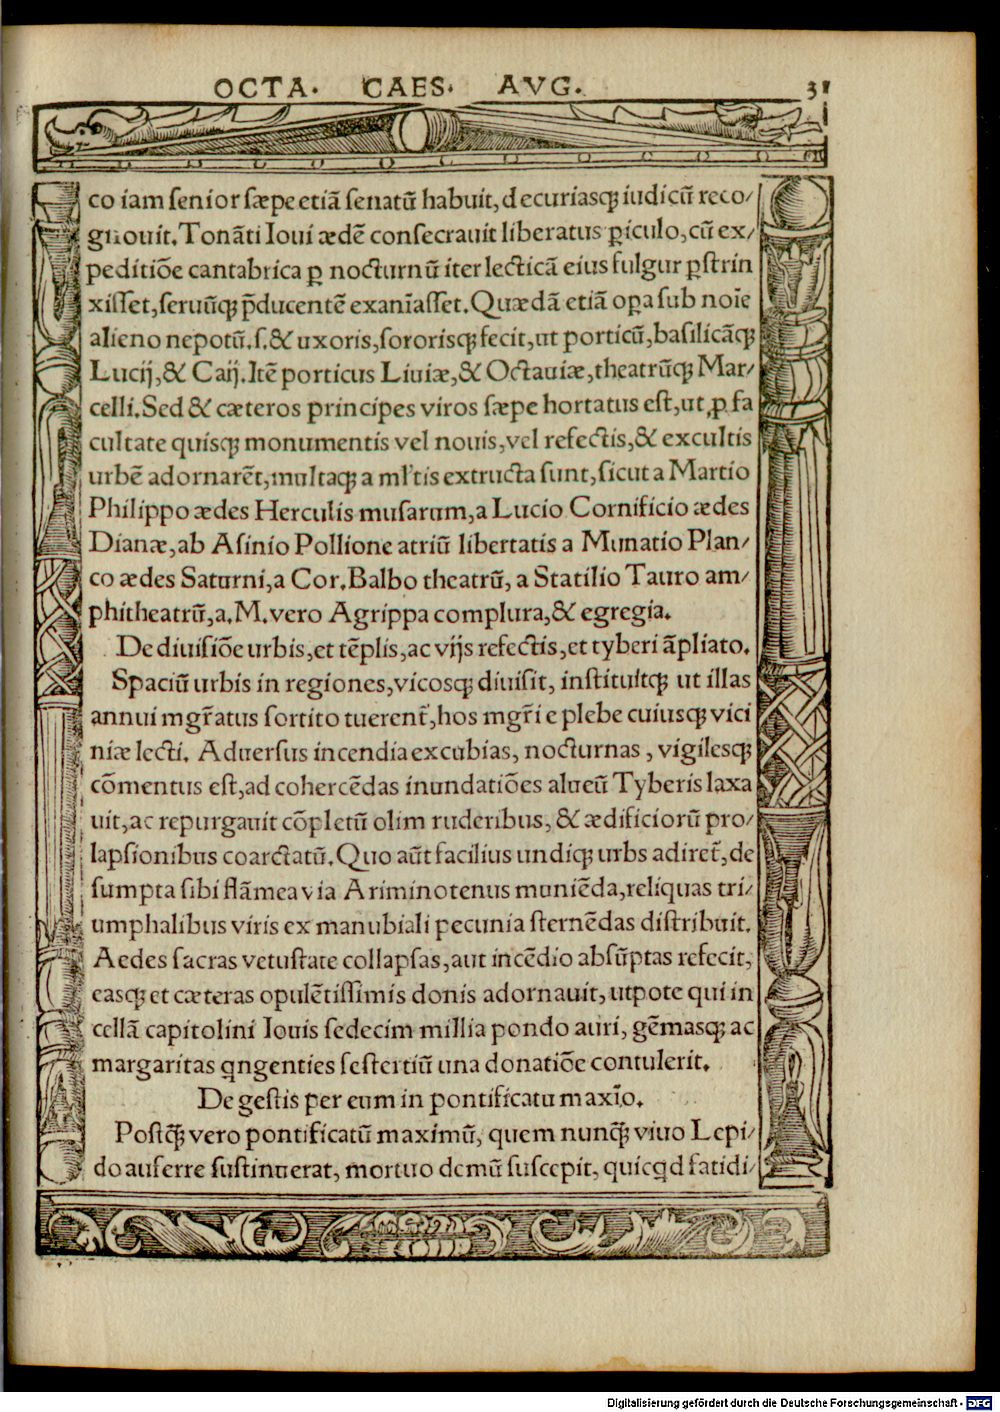 OCTA. CAES. AVG. 31
co iam ſenior ſæpe etiã ſenatũ habuit, decuriasq; iudicũ reco/
gnouit. Tonãti Ioui ædẽ conſecrauit liberatus ꝑiculo, cũ ex/
peditiõe cantabrica ꝑ nocturnũ iter lecticã eius fulgur ꝑſtrin
xiſſet, ſeruũq; p̃ducentẽ exanĩaſſet. Quædã etiã oꝑa ſub noĩe
alieno nepotũ. ſ. & uxoris, ſororisq; fecit, ut porticũ, baſilicãq;
Lucij, & Caij. Itẽ porticus Liuiæ, & Octauiæ, theatrũq; Mar/
celli. Sed & cæteros principes viros ſæpe hortatus eſt, ut, ꝓ fa
cultate quisq; monumentis vel nouis, vel refectis, & excultis
urbẽ adornarẽt, multaq; a ml'tis extructa ſunt, ſicut a Martio
Philippo ædes Herculis muſarum, a Lucio Cornificio ædes
Dianæ, ab Aſinio Pollione atriũ libertatis a Munatio Plan/
co ædes Saturni, a Cor. Balbo theatrũ, a Statilio Tauro am/
phitheatrũ, a. M. vero Agrippa complura, & egregia.
De diuiſiõe urbis, et tẽplis, ac vijs refectis, et tyberi ãpliato.
Spaciũ urbis in regiones, vicosq; diuiſit, inſtituitq; ut illas
annui mgr̃atus ſortito tuerent̃, hos mgr̃i e plebe cuiusq; vici
niæ lecti. Aduerſus incendia excubias, nocturnas, vigilesq;
cõmentus eſt, ad cohercẽdas inundatiões alueũ Tyberis laxa
uit, ac repurgauit cõpletũ olim ruderibus, & ædificiorũ pro/
lapſionibus coarctatũ. Quo aũt facilius undiq; urbs adiret̃, de
ſumpta ſibi flãmea via Arimino tenus muniẽda, reliquas tri/
umphalibus viris ex manubiali pecunia ſternẽdas diſtribuit.
Aedes ſacras vetuſtate collapſas, aut incẽdio abſũptas refecit,
easq; et cæteras opulẽtiſſimis donis adornauit, utpote qui in
cellã capitolini Iouis ſedecim millia pondo auri, gẽmasq; ac
margaritas qngenties ſeſtertiũ una donatiõe contulerit.
De geſtis per eum in pontificatu maxĩo.
Poſtq̃ vero pontificatũ maximũ, quem nunq̃ viuo Lepi/
do auferre ſuſtinuerat, mortuo demũ ſuſcepit, quicqd fatidi/
Digitalisierung gefördert durch die Deutsche Forschungsgemeinschaft - DFG